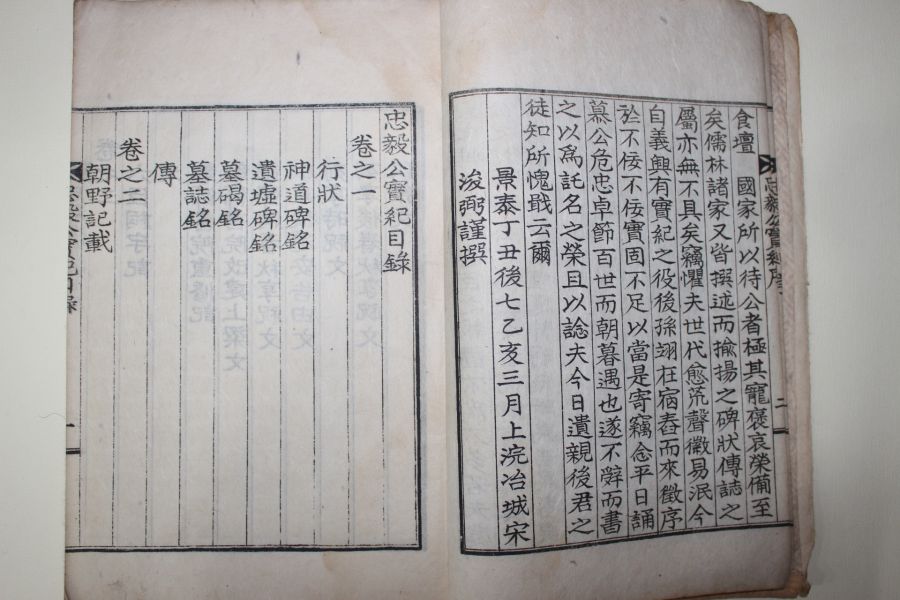 忠毅公實紀序
二
食壇　國家所以待公者極其寵褒哀榮備至
矣儒林諸家又皆撰述而揄揚之碑狀傳誌之
屬亦無不具矣竊懼夫世代愈荒聲徽易泯今
自義興有實紀之役後孫翊枉宿舂而來徵序
於不佞不佞實固不足以當是寄竊念平日誦
慕公危忠卓節百世而朝暮遇也遂不辭而書
之以爲託名之榮且以諗夫今日遺親後君之
徒知所愧戢云爾
景泰丁丑後七乙亥三月上浣冶城宋
浚弼謹撰
忠毅公實紀目錄
卷之一
行狀
神道碑銘
遺墟碑銘
墓碣銘
墓誌銘
傳
卷之二
朝野記載
忠毅公實紀目錄
一